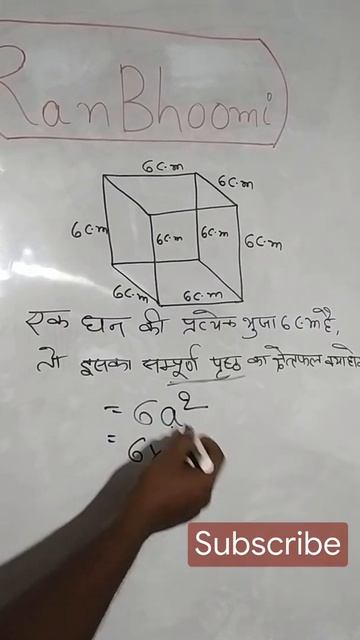 RanBhoomi
6c.m
6c.m
6c.m
6c.m
6c.m
6c.m
6c.m
6c.m
एक घन की प्रत्येक भुजा 6c.m है,
तो इसका सम्पूर्ण पृष्ठ का क्षेत्रफल क्या
= 6a²
= 6
Subscribe